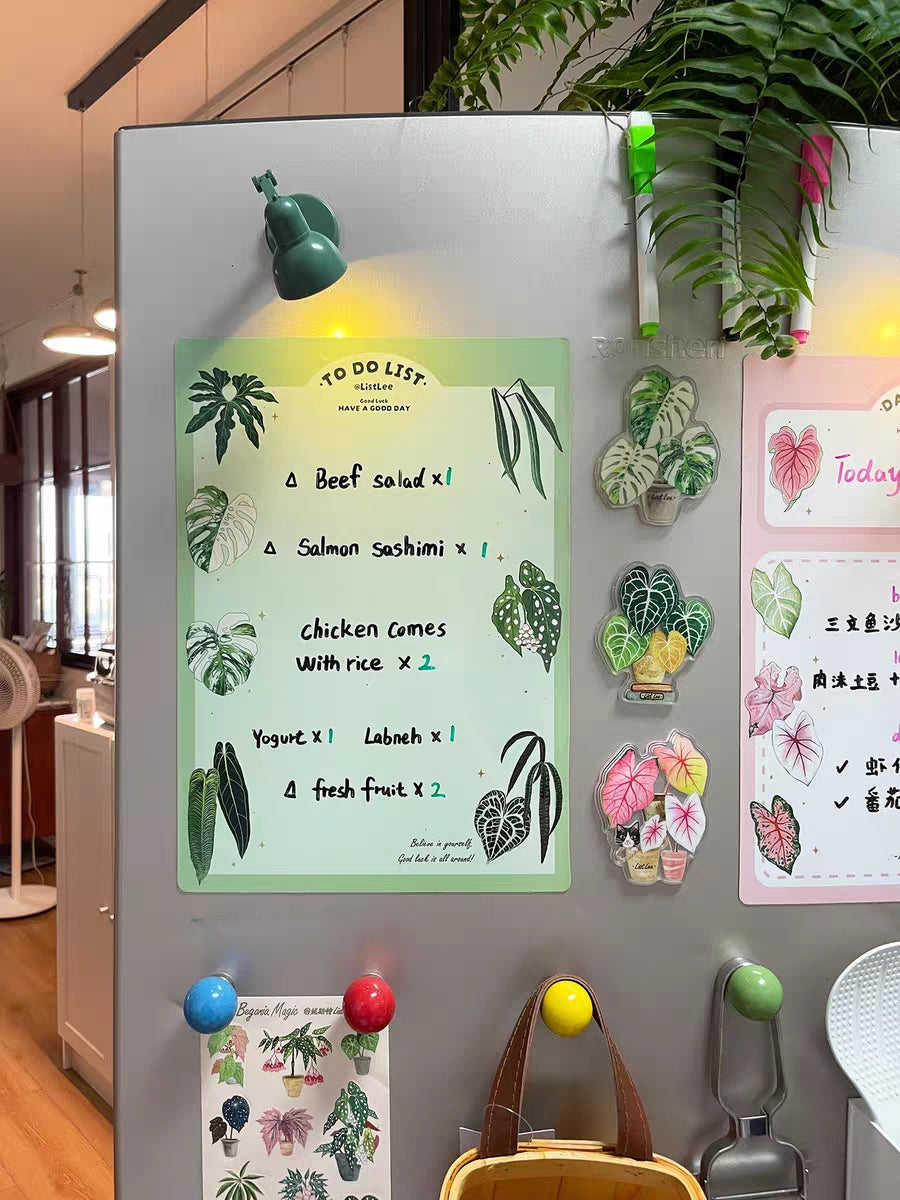 Roushen
·TO DO LIST·
@ListLee
Good Luck
HAVE A GOOD DAY
Δ Beef salad ×1
Δ Salmon sashimi × 1
Chicken Comes
With rice × 2
Yogurt × 1 Labneh × 1
Δ fresh fruit × 2
Believe in yourself,
Good luck is all around!
List Lee
List Lee
List Lee
·DA
Today
b
三文鱼沙
l
肉沫土豆 +
d
✓ 虾仁
✓ 番茄
Begonia Magic